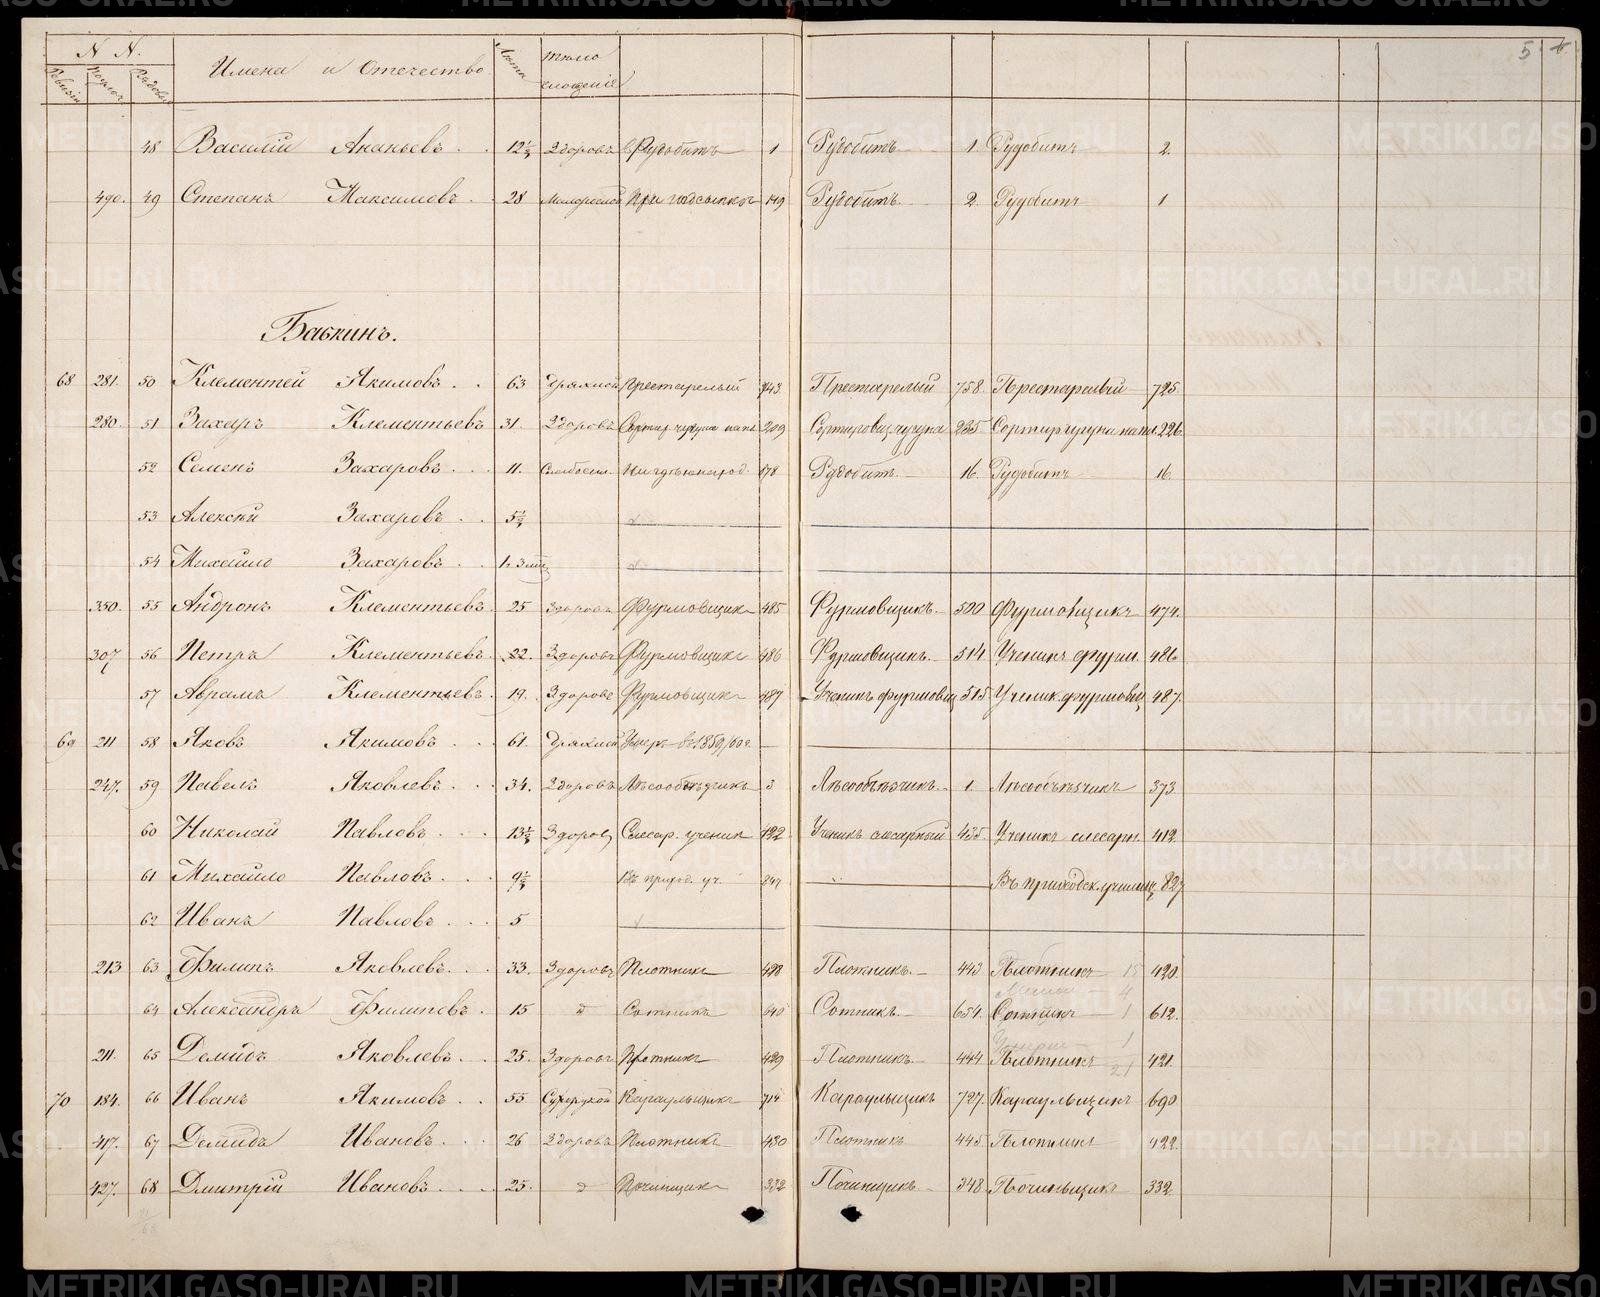 N N.
Ревизіи Послуж. Рядовый Имена и Отечество Лѣта тѣлосложеніе
5
48 Василій Ананьевъ 12½ Здоровъ Рудобитъ 1 Рудобитъ 1 Рудобитъ 2.
490. 49 Степанъ Максимовъ 28 Малорослой При подсыпкѣ 149 Рудобитъ 2 Рудобитъ 1
Бабкинъ.
68 281. 50 Клементей Якимовъ 63 Дряхлой Престарелый 743 Престарелый 758. Престарелый 725.
280. 51 Захаръ Клементьевъ 31. Здоровъ Сортир. чугуна 209 Сортировщ. чугуна 235 Сортир. чугуна 226.
52 Семенъ Захаровъ 11. Слабосил. Нигдѣ не наход. 678 Рудобитъ 16. Рудобитъ 16.
53 Алексѣй Захаровъ 5½
54 Михайло Захаровъ 1. 3 мѣс.
350. 55 Андронъ Клементьевъ 25 Здоровъ Фурмовщикъ 485 Фурмовщикъ 500 Фурмовщикъ 474.
307 56 Петръ Клементьевъ 22. Здоровъ Фурмовщикъ 486 Фурмовщикъ 514 Ученикъ фурм. 486
57 Аврамъ Клементьевъ 19. Здоровъ Фурмовщикъ 487 Ученикъ фурмовщ. 515 Ученик. фурмовщ. 487.
69 211 58 Яковъ Якимовъ 61. Дряхлой Умеръ въ 1859/60 г.
247. 59 Павелъ Яковлевъ 34. Здоровъ Лѣсообъѣздчикъ 3 Лѣсообъѣзчикъ 1. Лѣсообъѣзчикъ 373
60 Николай Павловъ 13½ Здоровъ Слесар. ученик. 422 Ученикъ слесарный 435 Ученикъ слесарн. 412.
61 Михайло Павловъ 9½ Въ приход. уч. 847 Въ приходск. училищ. 827
62 Иванъ Павловъ 5
213 63 Филипъ Яковлевъ 33. Здоровъ Плотникъ 428 Плотникъ 443 Плотникъ 15 420.
64 Александръ Филиповъ 15 д Сотникъ 640 Сотникъ 654. Сотникъ 612.
211. 65 Демидъ Яковлевъ 25. Здоровъ Плотникъ 429 Плотникъ 444 Плотникъ 21 421.
70 184. 66 Иванъ Якимовъ 55 Сухорукой Караульщикъ 714 Караульщикъ 727. Караульщикъ 690
417. 67 Демидъ Ивановъ 26 Здоровъ Плотникъ 430 Плотникъ 445. Плотникъ 422.
427. 68 Дмитрій Ивановъ 25. д Починщикъ 332 Починщикъ 348 Починьщикъ 332.
METRIKI.GASO-URAL.RU